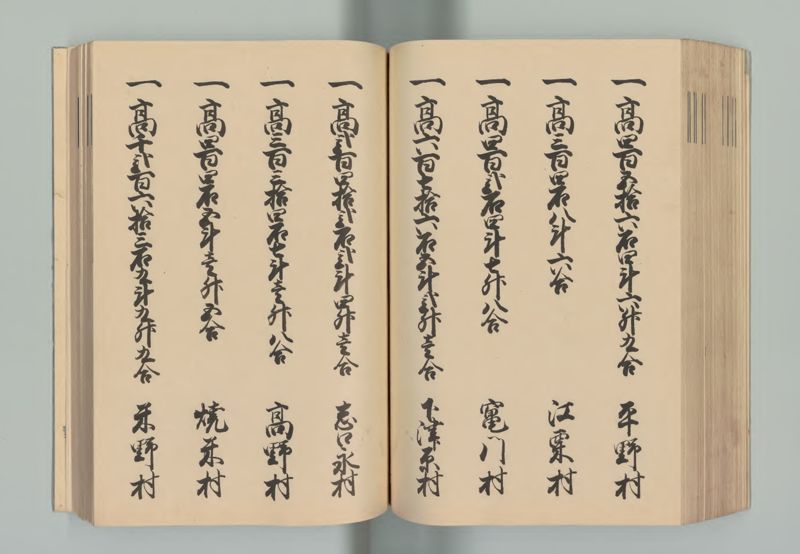 一高四百五拾六石四斗六升九合 平野村
一高三百四石八斗六合 江栗村
一高四百弐石四斗七升八合 竃門村
一高六百七拾六石五斗弐升壱合 下津原村
一高弐百四拾弐石弐斗四升壱合 志口永村
一高三百三拾四石七斗壱升八合 高野村
一高四百四石五斗壱升五合 焼米村
一高千弐百六拾三石九斗九升九合 米野村